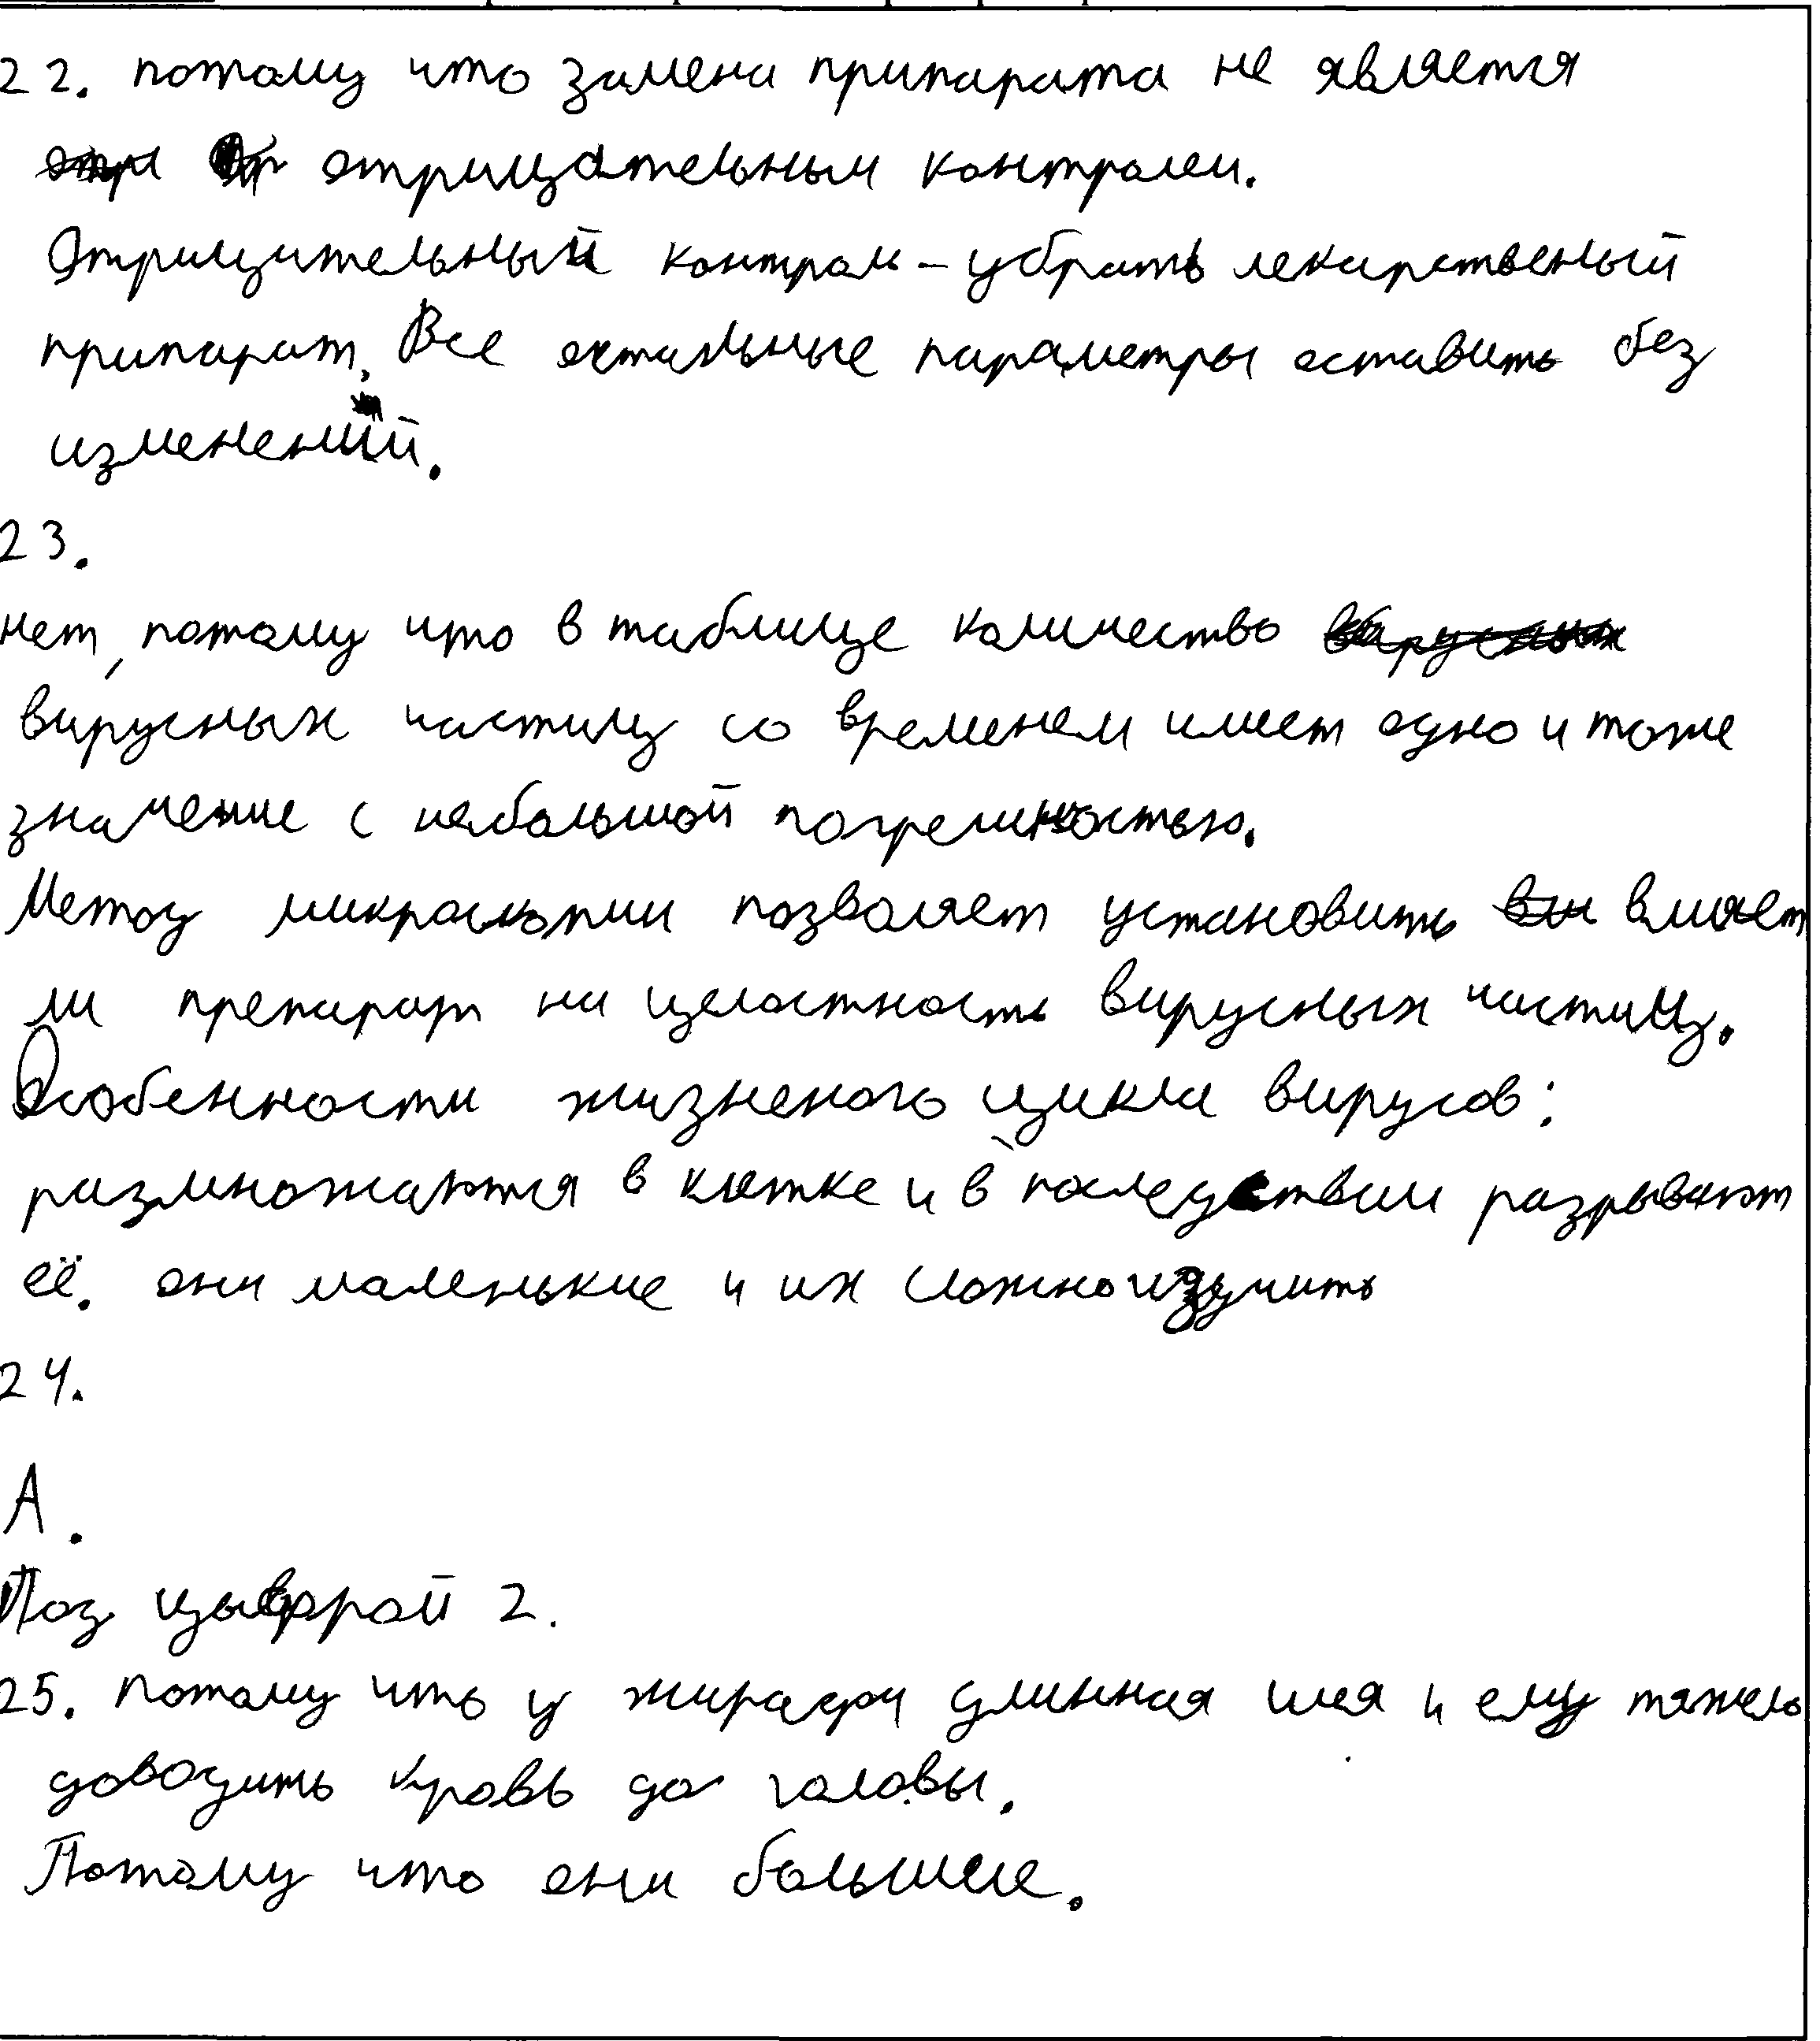 22. потому что замена припарата не является
отрицательным контролем.
Отрицительный контроль - убрать лекарственый
припарат. Все остальные параметры оставить без
изменений.
23.
нет, потому что в таблице количество
вирусных частиц со временем имеет одно и тоже
значение с небольшой погрешностью.
Метод микроскопии позволяет установить влияет
ли препарат на целостность вирусных частиц.
Особенности жизненого цикла вирусов:
размножаются в клетке и в последствии разрывают
её. они маленькие и их сложно изучить
24.
А.
Под цыфрой 2.
25. потому что у жирафа длинная шея и ему тяжело
доводить кровь до головы.
Потому что они большие.